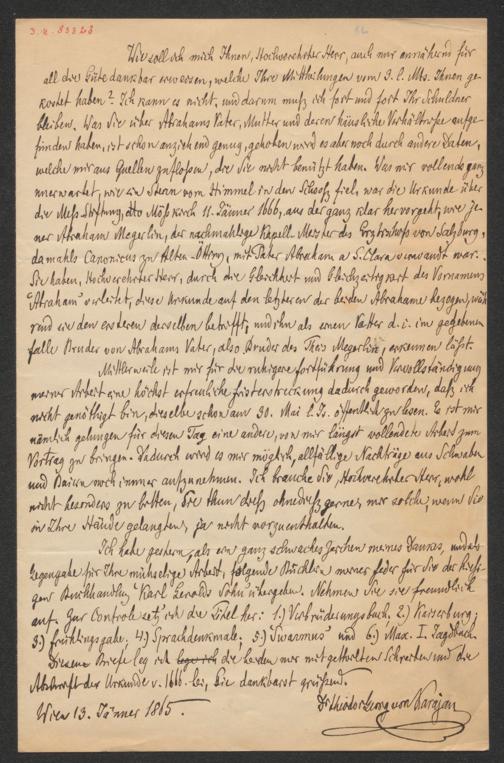 3. n. 83323
Wie soll ich mich Ihnen, Hochverehrter Herr, auch nur annähernd für
all die Güte dankbar erweisen, welche Ihre Mittheilungen vom 3. l. Mts. Ihnen ge-
kostet haben? Ich kann es nicht, und darum muß ich fort und fort Ihr Schuldner
bleiben. Was Sie über Abrahams Vater, Mutter und deren häusliche Verhältnisse aufge-
funden haben, ist schon anziehend genug, gehoben wird es aber noch durch andere Daten,
welche mir aus Quellen zuflossen, die Sie nicht benützt haben. Was mir vollends ganz
unerwartet, wie ein Stern vom Himmel in den Schooß fiel, war die Urkunde über
die Meß Stiftung, Mößkirch 11. Jänner 1666, aus der ganz klar hervorgeht, wie je-
ner Abraham Megerlin, der nachmahlige Kapell-Meister des Erzbischofs von Salzburg,
damahls Canonicus zu Alten-Öttting, mit Pater Abraham a S. Clara verwandt war.
Sie haben, Hochverehrter Herr, durch die Gleichheit und Gleichzeitigkeit des Vornamens
"Abraham" verleitet, diese Urkunde auf den letzteren der beiden Abrahame bezogen, wäh
rend sie den ersteren derselben betrifft, und ihn als einen Vetter d. i. im gegebenen
falle Bruder von Abrahams Vater, also Bruder des Theis Megerlin, erkennen läßt.
Mittlerweile ist mir für die ruhigere Fortführung und Vervollständigung
meiner Arbeit eine höchst erfreuliche Fristerstreckung dadurch geworden, daß ich
nicht genöthigt bin, dieselbe schon am 30. Mai l. Js. öffentlich zu lesen. Es ist mir
nämlich gelungen für diesen Tag eine andere, von mir längst vollendete Arbeit zum
Vortrag zu bringen. Dadurch wird es mir möglich, allfällige Nachträge aus Schwaben
und Baiern noch immer aufzunehmen. Ich brauche Sie, Hochverehrter Herr, wohl
nicht besonders zu bitten, Sie thun dieß ohnedieß gerne, mir solche, wenn Sie
in Ihre Hände gelangten, ja nicht vorzuenthalten.
Ich habe gestern, als ein ganz schwaches Zeichen meines Dankes, und als
Gegengabe für Ihre mühselige Arbeit, folgende Büchlein meiner Feder für Sie der hiesi-
gen Buchhandlung Karl Gerolds Sohn übergeben. Nehmen Sie sie freundlich
auf. Zur Controle setz' ich die Titel her: 1.) Verbrüderungsbuch. 2.) Kaiserburg;
3.) Frühlingsgabe. 4.) Sprachdenkmale; 5.) Swarmus und 6.) Max. I. Jagdbuch.
Diesem Briefe leg ich die beiden mir mitgetheilten Schreiben und die
Abschrift der Urkunde v. 1666. bei, Sie dankbarst grüßend.
Wien 13. Jänner 1865.
Dr Theodor Georg von Karajan